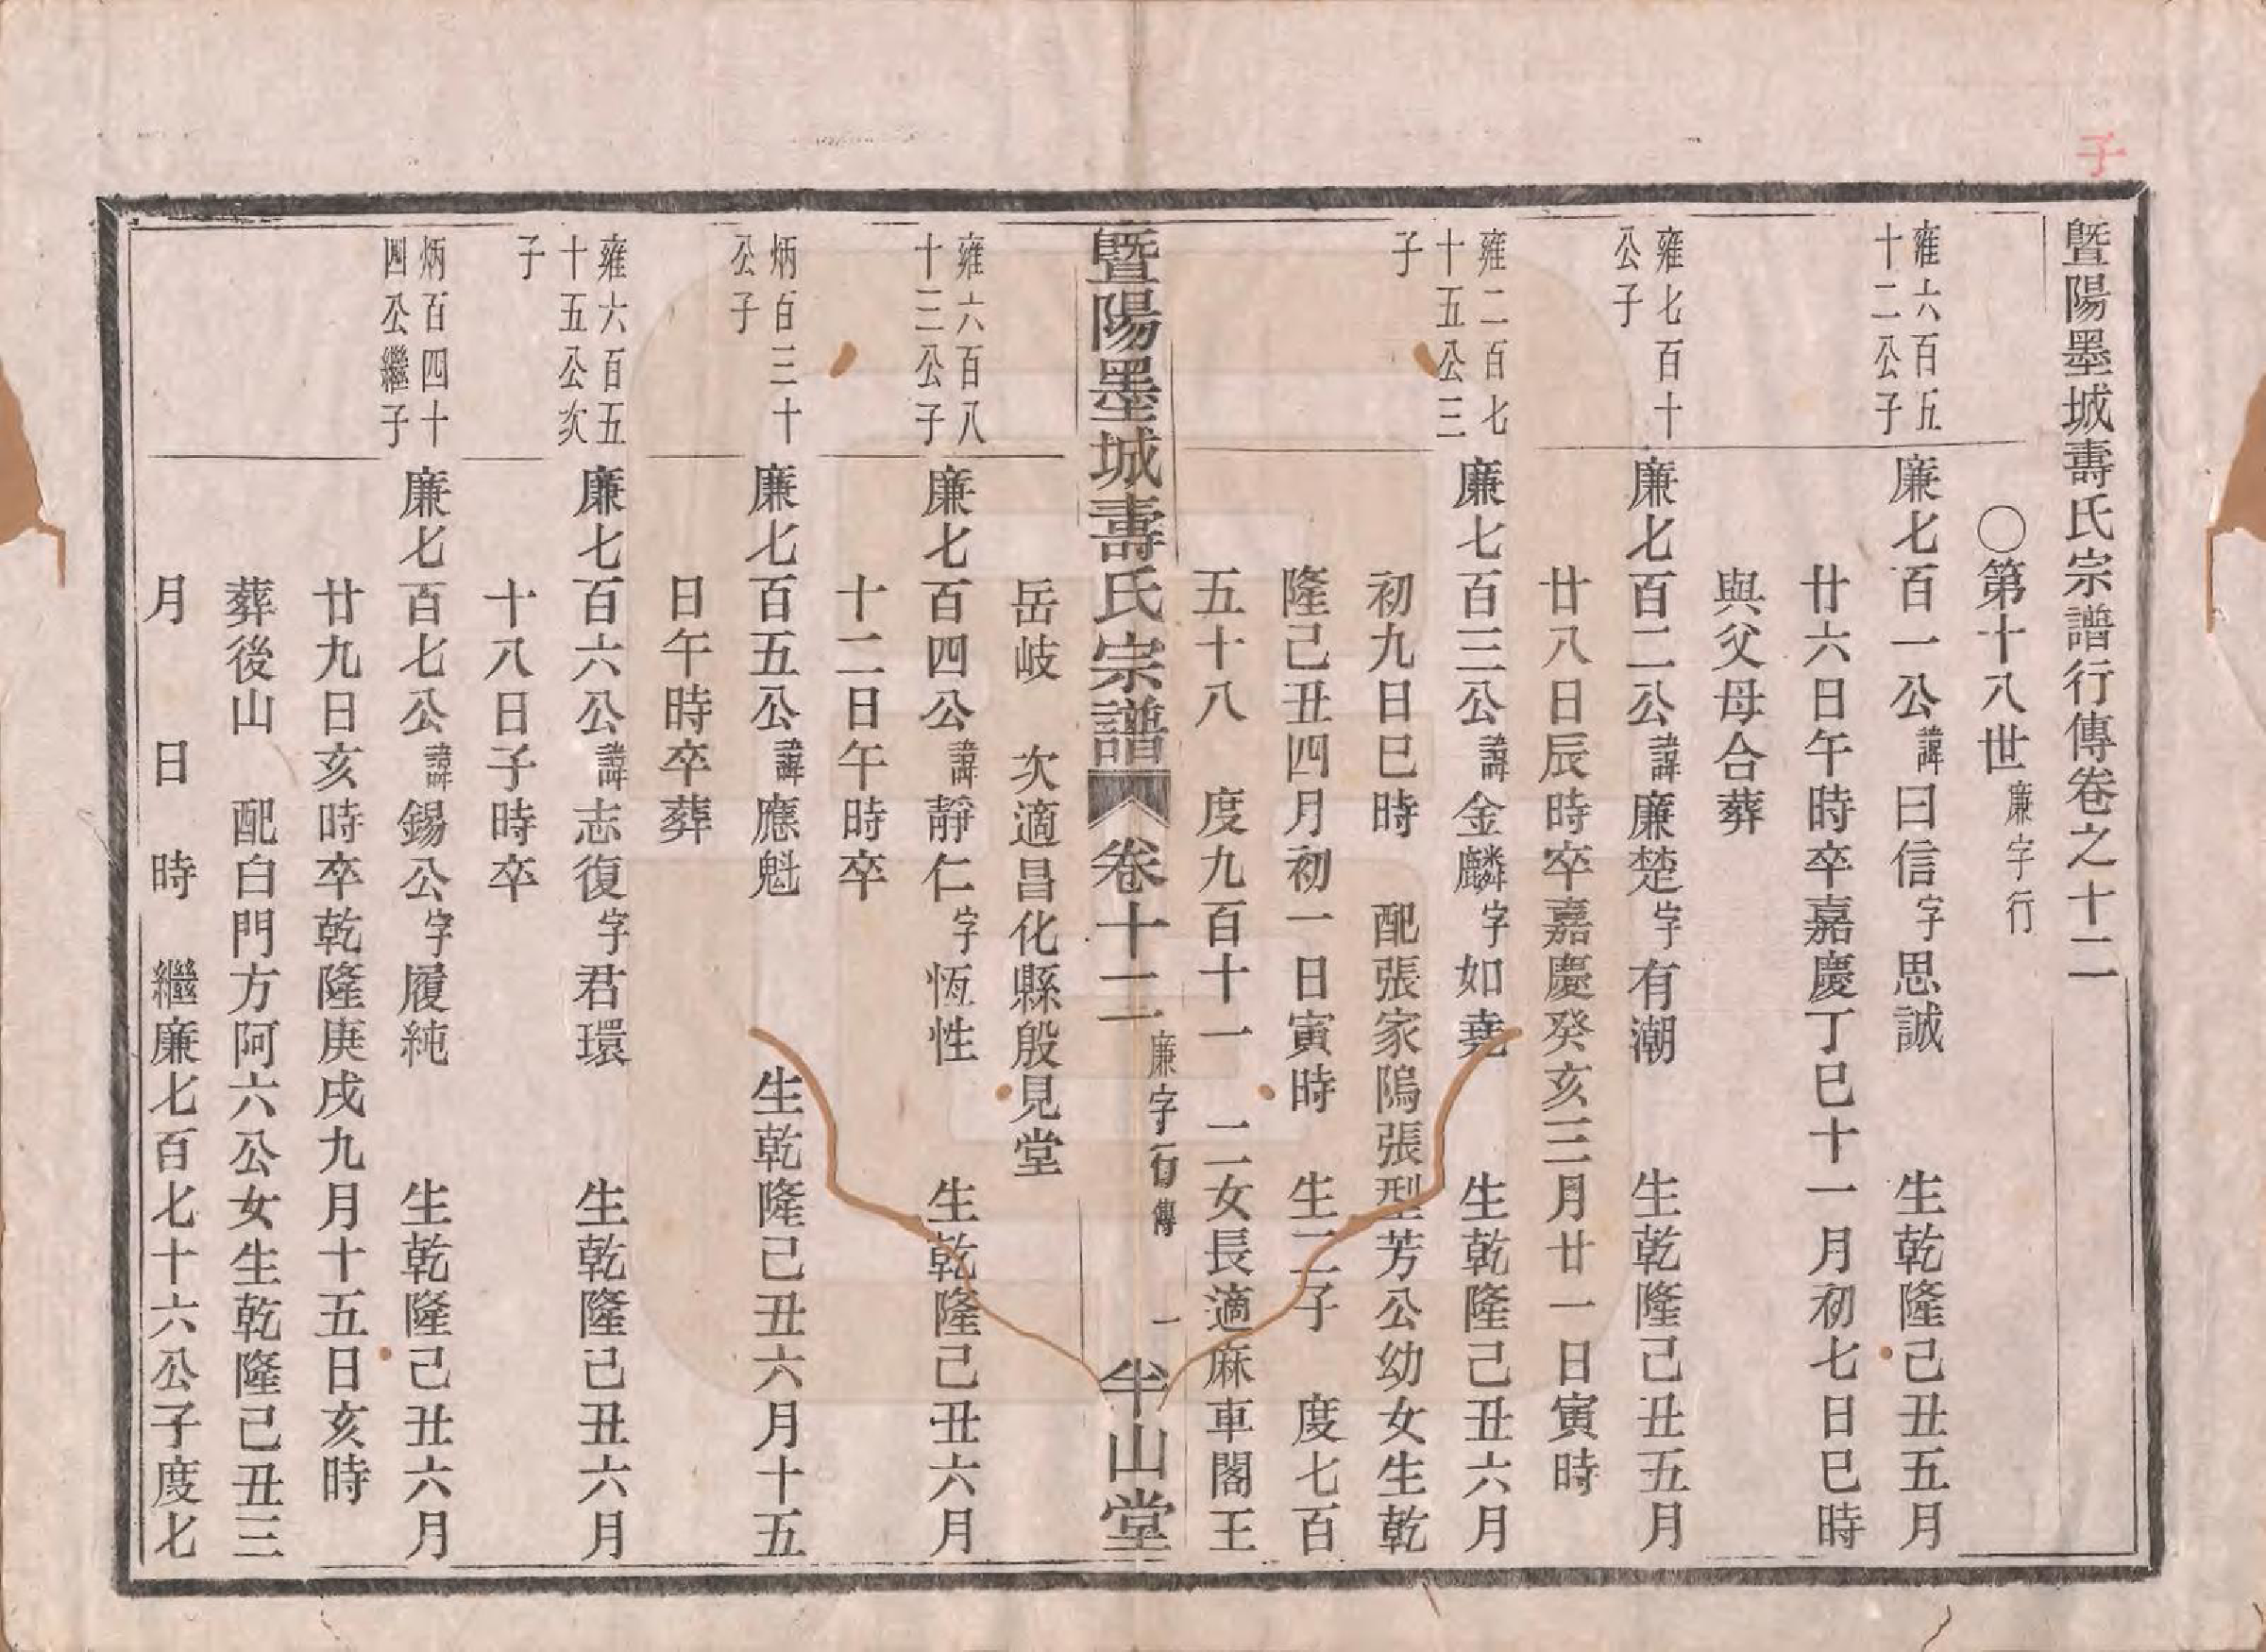 子
暨陽墨城壽氏宗譜行傳卷之十二
〇第十八世廉字行
雍六百五
十二公子
廉七百一公諱曰信字思誠 生乾隆己丑五月
廿六日午時卒嘉慶丁巳十一月初七日巳時
與父母合葬
雍七百十
公子
廉七百二公諱廉楚字有潮 生乾隆己丑五月
廿八日辰時卒嘉慶癸亥三月廿一日寅時
雍二百七
十五公三
子
廉七百三公諱金麟字如堯 生乾隆己丑六月
初九日巳時 配張家隖張型芳公幼女生乾
隆己丑四月初一日寅時 生二子 度七百
五十八 度九百十一 二女長適麻車閣王
暨陽墨城壽氏宗譜 卷十二 廉字行傳 一 半山堂
岳岐 次適昌化縣殷見堂
雍六百八
十三公子
廉七百四公諱靜仁字恆性 生乾隆己丑六月
十二日午時卒
炳百三十
公子
廉七百五公諱應魁 生乾隆己丑六月十五
日午時卒葬
雍六百五
十五公次
子
廉七百六公諱志復字君環 生乾隆己丑六月
十八日子時卒
炳百四十
四公繼子
廉七百七公諱錫公字履純 生乾隆己丑六月
廿九日亥時卒乾隆庚戌九月十五日亥時
葬後山 配白門方阿六公女生乾隆己丑三
月 日 時 繼廉七百七十六公子度七